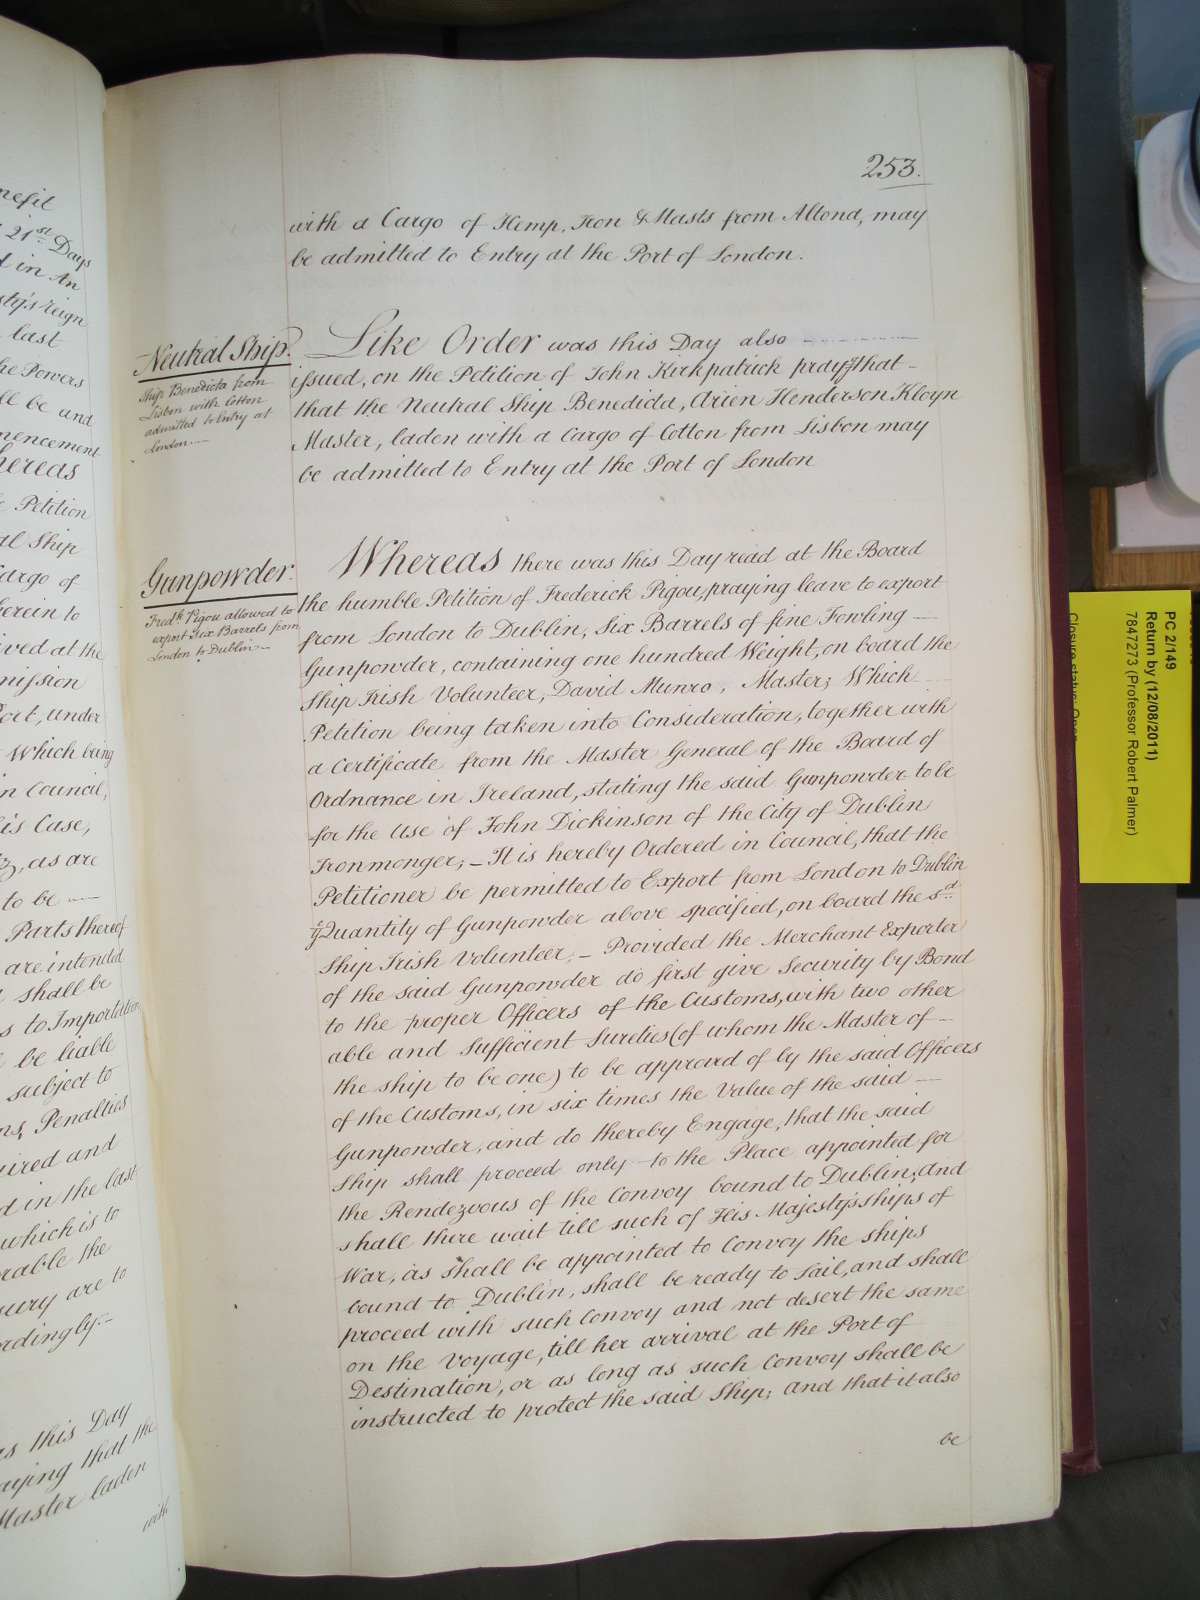 nefit
21st Days
d in An
sty's reign
last
he Powers
ll be and
mencement
hereas
Petition
al Ship
Cargo of
herein to
ived at the
mission
Port, under
Which being
in Council,
his Case,
as are
to be —
Parts thereof
are intended
shall be
s to Importation
be liable
subject to
ns, Penalties
uired and
d in the last
which is to
rable the
sury are to
ordingly.—
as this Day
aying that the
Master laden
with
253.
with a Cargo of Hemp, Iron & Masts from Altona, may
be admitted to Entry at the Port of London.
Neutral Ship.
Ship Benedicta from
Lisbon with Cotton
admitted to Entry at
London.—
Like Order was this Day also
issued, on the Petition of John Kirkpatrick prays that —
that the Neutral Ship Benedicta, Arien Henderson Kloyn
Master, laden with a Cargo of Cotton from Lisbon may
be admitted to Entry at the Port of London
Gunpowder.
Fredk. Pigou allowed to
export Six Barrels from
London to Dublin —
Whereas there was this Day read at the Board
the humble Petition of Frederick Pigou, praying leave to export
from London to Dublin, Six Barrels of fine Fowling —
Gunpowder, containing one hundred Weight, on board the
Ship Irish Volunteer, David Munro, Master; Which
Petition being taken into Consideration, together with
a Certificate from the Master General of the Board of
Ordnance in Ireland, stating the said Gunpowder to be
for the Use of John Dickinson of the City of Dublin
Ironmonger; — It is hereby Ordered in Council, that the
Petitioner be permitted to Export from London to Dublin
ye Quantity of Gunpowder above specified, on board the sd.
Ship Irish Volunteer; — Provided the Merchant Exporter
of the said Gunpowder do first give Security by Bond
to the proper Officers of the Customs, with two other
able and Sufficient Sureties (of whom the Master of —
the ship to be one) to be approved of by the said Officers
of the Customs, in six times the Value of the said —
Gunpowder, and do thereby Engage, that the said
Ship shall proceed only to the Place appointed for
the Rendezvous of the Convoy bound to Dublin; and
shall there wait till such of His Majesty's ships of
War, as shall be appointed to Convoy the ships
bound to Dublin, shall be ready to Sail, and shall
proceed with such Convoy and not desert the same
on the Voyage, till her arrival at the Port of
Destination, or as long as such Convoy shall be
instructed to protect the said Ship; and that it also
be
PC 2/149
Return by (12/08/2011)
7847273 (Professor Robert Palmer)
Closure status: Open